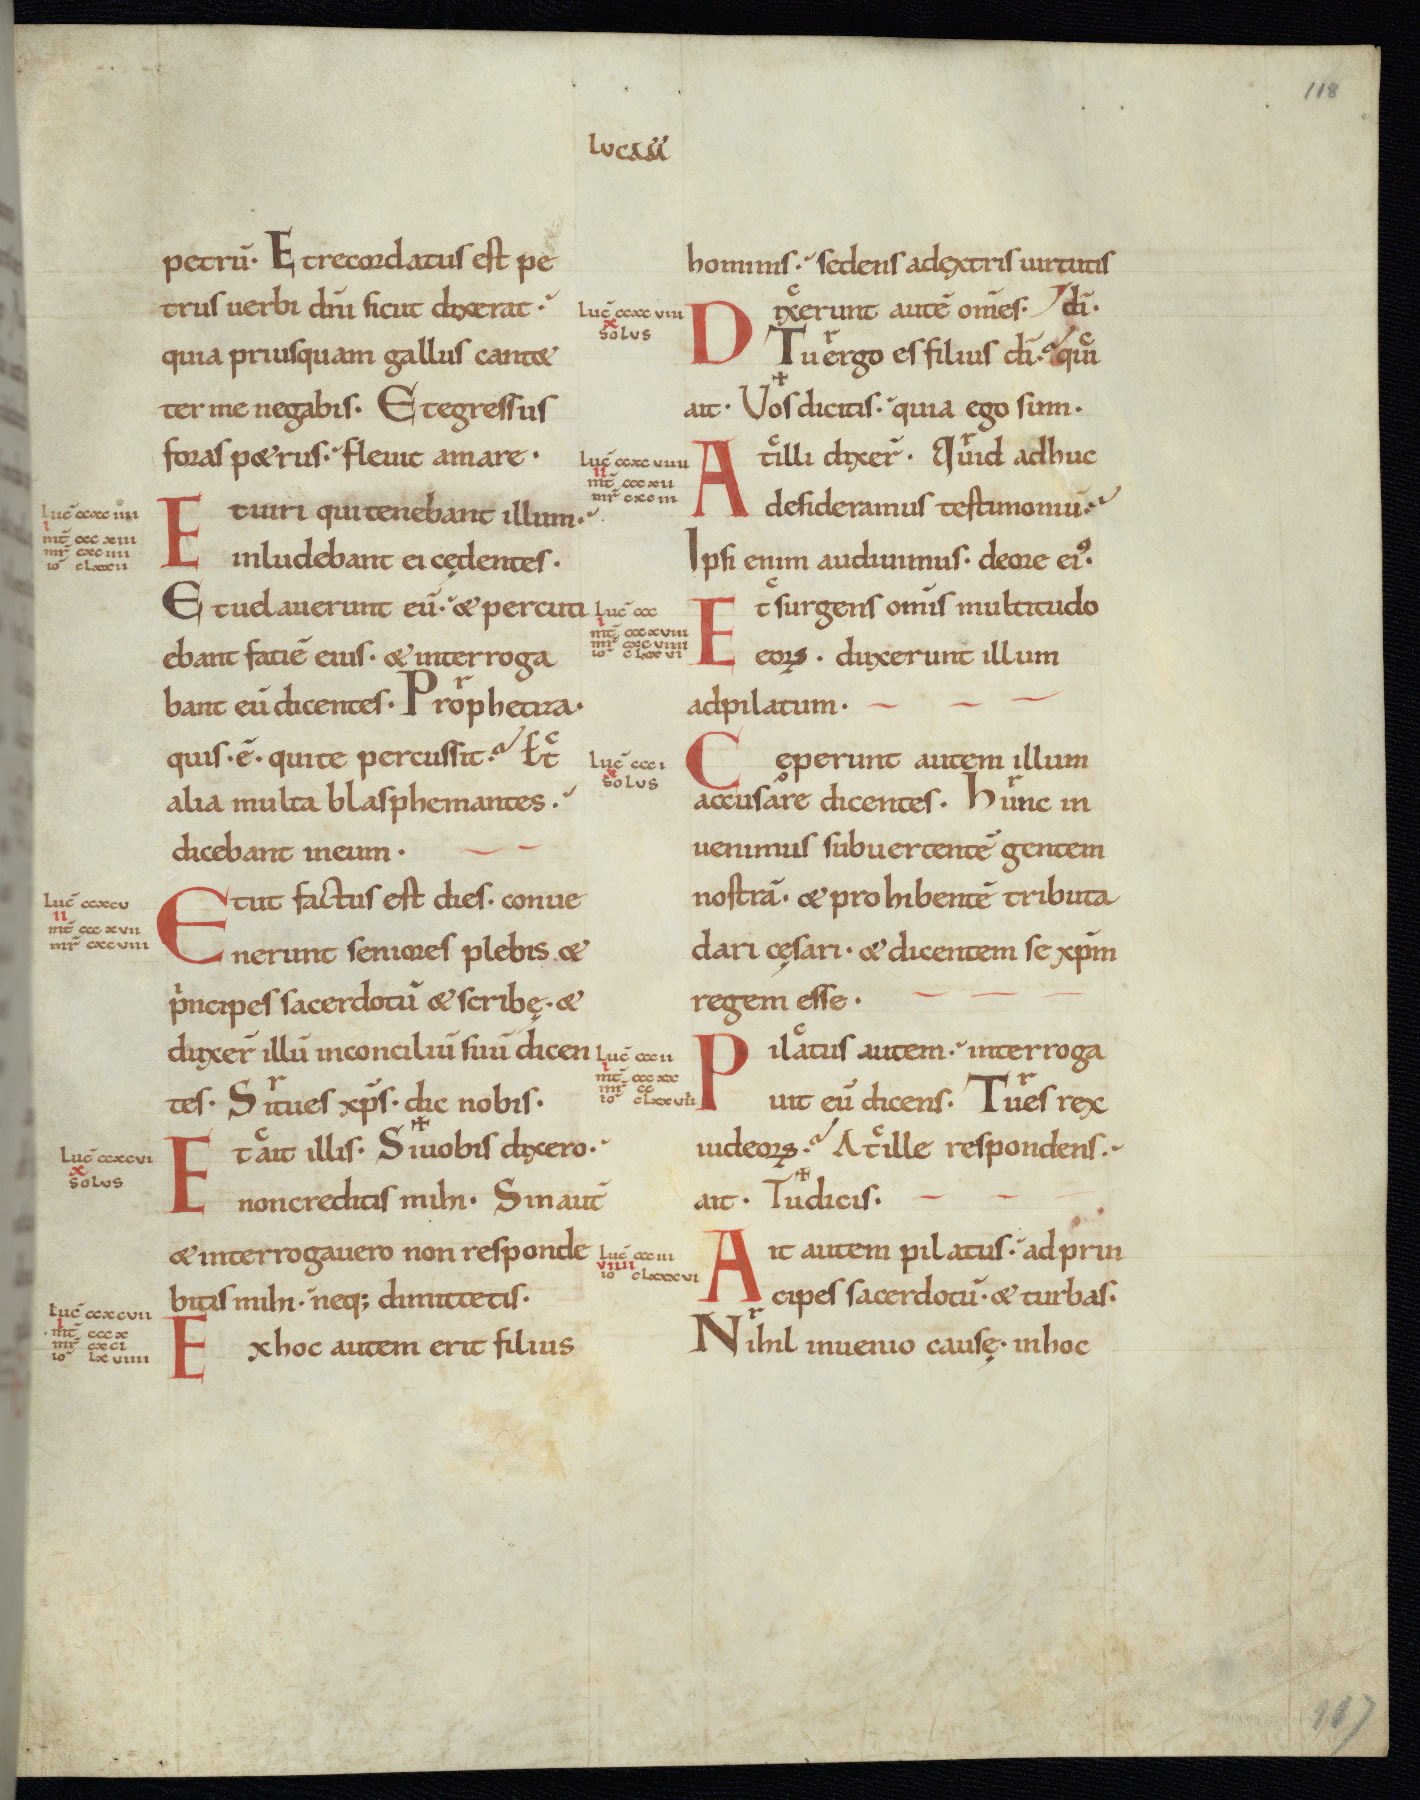 118
Lucam
petrū· Et recordatus est pe
trus uerbi dn̄i sicut dixerat·
quia priusquam gallus cant&
ter me negabis· Et egressus
foras p&rus· fleuit amare·
Luc̄ ccxc iiii
i
mt̄ ccc xiii
mr̄ cxc iiii
io clxx ii
Et uiri qui tenebant illum·
inludebant ei cędentes·
Et uelauerunt eū· & percuti
ebant fatiē eius· & interroga
bant eū dicentes· Prophetiza·
quis·ē· qui te percussit· Et
alia multa blasphemantes·
dicebant in eum·
Luc̄ ccxcv
ii
mt̄ ccc xvii
mr̄ cxcviii
Et ut factus est dies· conue
nerunt seniores plebis &
prīncipes sacerdotū & scribę· &
duxer̄ illū in conciliū suū dicen
tes· Si tu es xp̄s· dic nobis·
Luc̄ ccxcvi
x
solus
Et ait illis· Si uobis dixero·
non creditis mihi· Sin aut̄
& interrogauero non responde
bitis mihi· neq; dimittetis·
Luc̄ ccxcvii
i
mt̄ cccx
mr̄ cxci
io lxviiii
Ex hoc autem erit filius
hominis· sedens adextris uirtutis
Luc̄ ccxcviii
x
solus
Dixerunt autē om̄es·
dī·
Tu ergo es filius dī· qui
ait· Vos dicitis· quia ego sum·
Luc̄ ccxcviiii
ii
mt̄ cccxii
mr̄ cxciii
At illi dixer̄· Quid adhuc
desideramus testimoniū·
Ipsi enim audiuimus· de ore ei9·
Luc̄ ccc
i
mt̄ cccxviii
mr̄ cxcviiii
io clxxvi
Et surgens om̄is multitudo
eoꝝ· duxerunt illum
ad pilatum·
Luc̄ ccci
x
solus
Cęperunt autem illum
accusare dicentes· Hunc in
uenimus subuertentē gentem
nostrā· & prohibentē tributa
dari cęsari· & dicentem se xp̄m
regem esse·
Luc̄ cccii
i
mt̄ cccxx
mr̄ cc
io clxxviii
Pilatus autem· interroga
uit eū dicens· Tu es rex
iudeoꝝ· At ille respondens·
ait· Tu dicis·
Luc̄ ccciii
viiii
io clxxxvi
Ait autem pilatus· ad prin
cipes sacerdotū· & turbas·
Nihil inuenio causę· in hoc
117